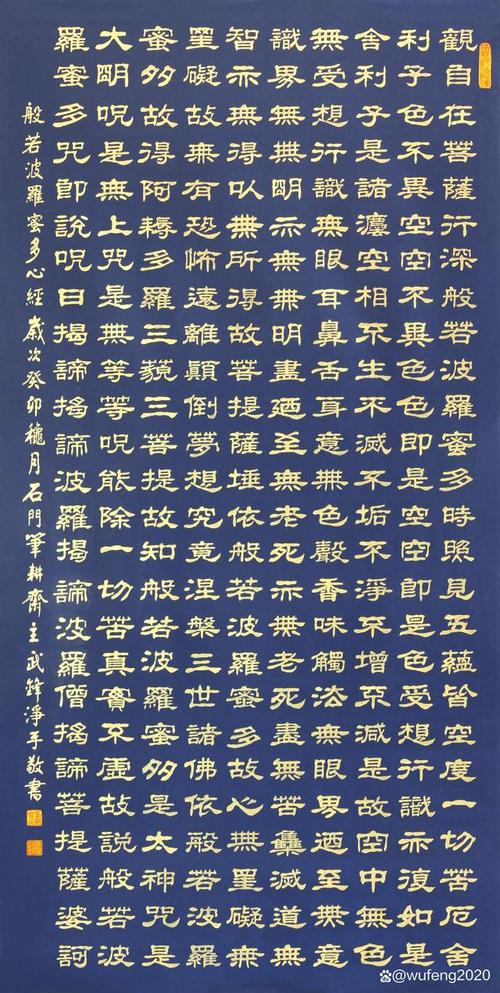 觀自在菩薩行深般若波羅蜜多時照見五蘊皆空度一切苦厄舍
利子色不異空空不異色色即是空空即是色受想行識亦復如是
舍利子是諸灋空相不生不滅不垢不淨不增不減是故空中無色
無受想行識無眼耳鼻舌身意無色聲香味觸法無眼界廼至無意
識界無無明亦無無明盡廼至無老死亦無老死盡無苦集滅道無
智亦無得以無所得故菩提薩埵依般若波羅蜜多故心無罣礙無
罣礙故無有恐怖遠離顛倒夢想究竟涅槃三世諸佛依般若波羅
蜜多故得阿耨多羅三藐三菩提故知般若波羅蜜多是太神咒是
大明呪是無上咒是無等等呪能除一切苦真實不虛故說般若波
羅蜜多咒即說呪曰揭諦揭諦波羅揭諦波羅僧揭諦菩提薩婆訶
般若波羅蜜多心經歲次癸卯穐月石門筆耕齋主武鋒淨手敬書
@wufeng2020